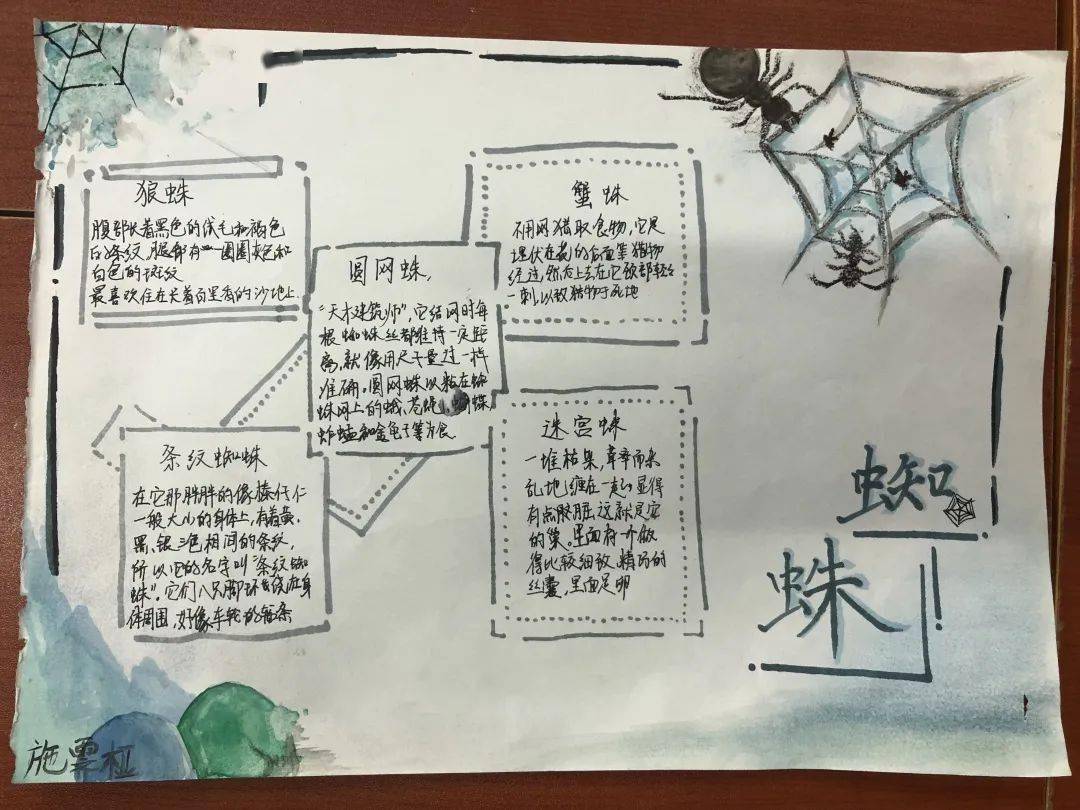 狼蛛
腹部长着黑色的绒毛和褐色
的条纹,腿部有一圈圈灰色和
白色的斑纹
最喜欢住在长着百里香的沙地上.
圆网蛛.
“天才建筑师”,它结网时每
根蜘蛛丝都维持一定距
离,就像用尺子量过一样
准确。圆网蛛以粘在蜘
蛛网上的蛾、苍蝇、蝴蝶,
蚱蜢和金龟子等为食
蟹蛛
不用网猎取食物,它是
埋伏在花的后面等猎物
经过,然后上去在它颈部轻轻
一刺,以致猎物于死地
条纹蜘蛛
在它那胖胖的像榛仔仁
一般大小的身体上,有着黄、
黑、银三色相间的条纹,
所以它的名字叫“条纹蜘
蛛”,它们八只脚环绕在身
体周围,好像车轮的辐条
迷宫蛛
一堆枯果,草率而杂
乱地缠在一起,显得
有点肮脏,这就是它
的巢。里面有一个做
得比较细致、精巧的
丝囊,里面是卵
蜘
蛛
施雲桠